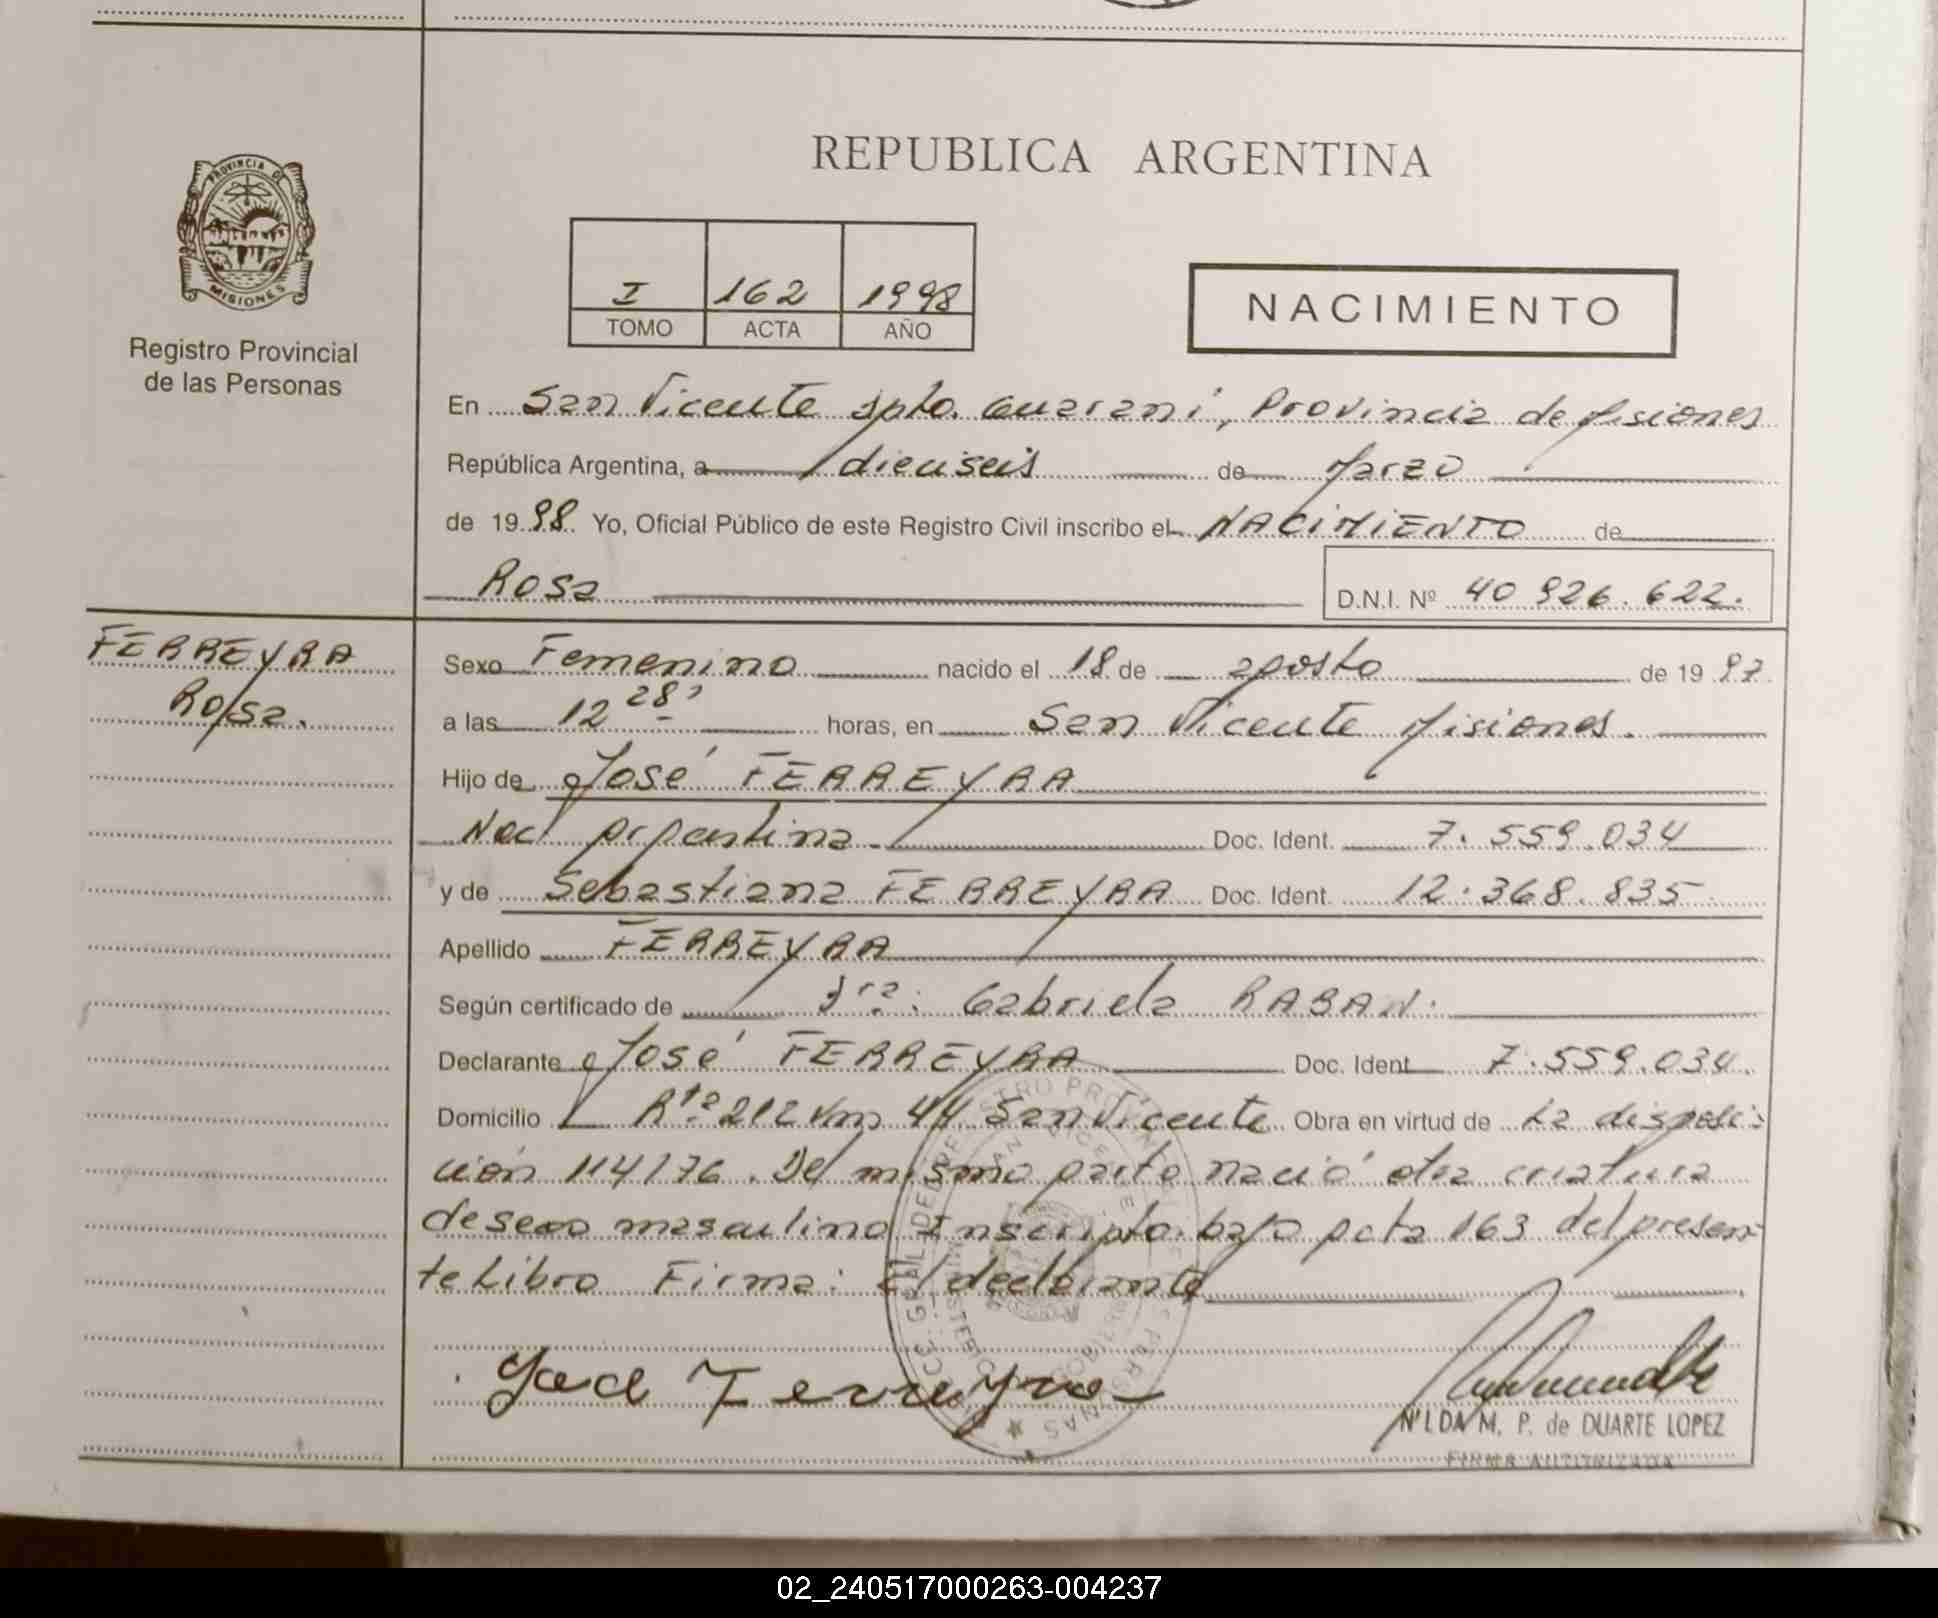 REPUBLICA ARGENTINA
PROVINCIA DE
MISIONES
Registro Provincial
de las Personas
I 162 1998
TOMO ACTA AÑO
NACIMIENTO
En San Vicente Dpto. Guaraní, Provincia de Misiones
República Argentina, a dieciseis de Marzo
de 1998 Yo, Oficial Público de este Registro Civil inscribo el NACIMIENTO de
Rosa D.N.I. Nº 40 926.622.
FERREYRA
Rosa.
Sexo Femenino nacido el 18 de agosto de 1997
a las 12 28' horas, en San Vicente Misiones.
Hijo de José FERREYRA
Nac. Argentina. Doc. Ident. 7.559.034
y de Sebastiana FERREYRA Doc. Ident. 12.368.835
Apellido FERREYRA
Según certificado de Dra: Gabriela RABAN.
Declarante José FERREYRA Doc. Ident 7.559.034.
Domicilio Rta 212 Km 44 San Vicente Obra en virtud de La disposi-
ción 114/76. Del mismo parto nació otra criatura
de sexo masculino Inscripto bajo acta 163 del presen-
te Libro Firma: El declarante
Ferreyra
NILDA M. P. de DUARTE LOPEZ
FIRMA AUTORIZADA
02_240517000263-004237